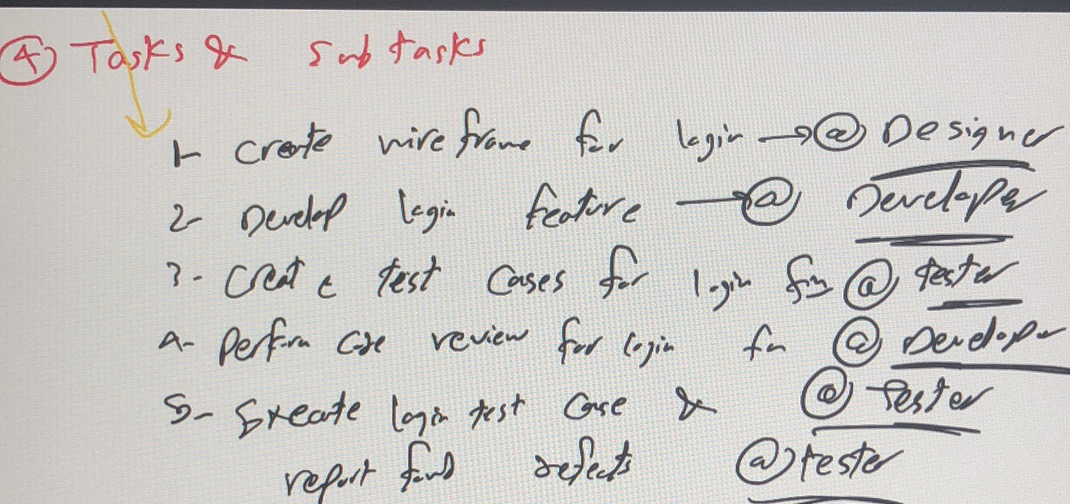 ④ Tasks & Subtasks
1- Create wireframe for login → @ Designer
2- Develop login feature → @ Developer
3- Create test cases for login fn @ tester
4- Perform code review for login fn @ Developer
5- Execute login test case & @ tester
report found defects @ tester